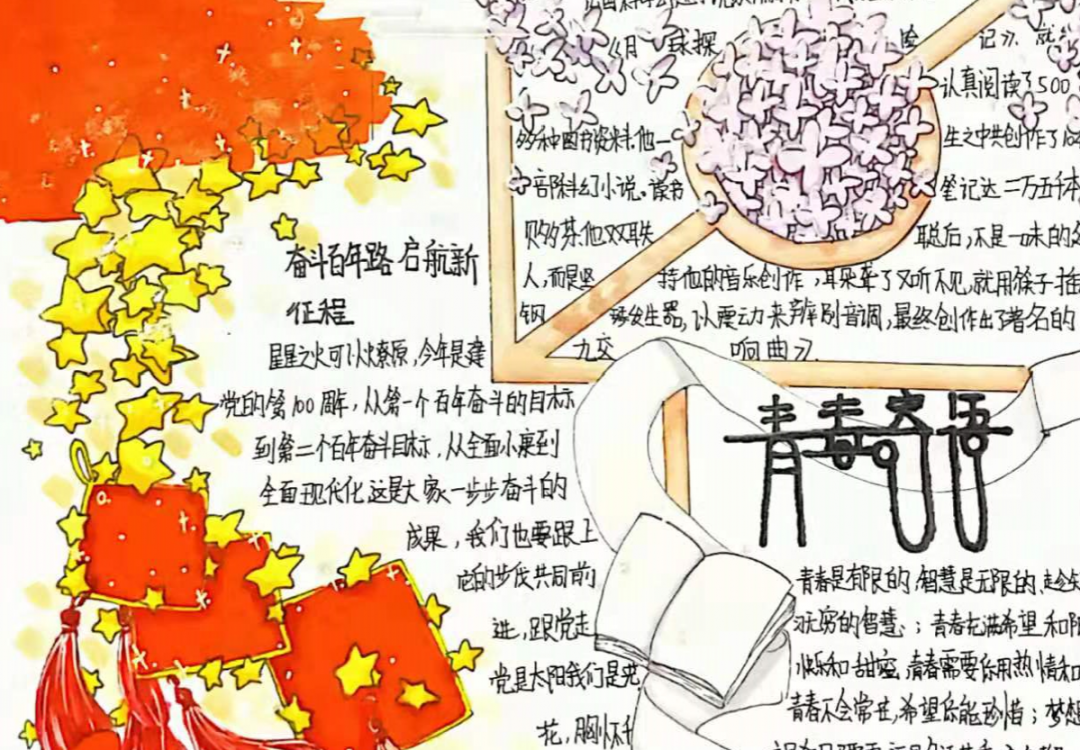 《月球探险记》就
认真阅读了500
多种图书资料.他一生之中共创作了
部科幻小说。读书笔记达二万五千本
贝多芬.他双耳失聪后,不是一味的
人,而是坚持他的音乐创作,耳朵聋了又听不见,就用筷子
钢琴发生器,以震动来辨别音调,最终创作出了著名的
九交响曲》
奋斗百年路启航新
征程
星星之火可以燎原,今年是建
党的第100周年,从第一个百年奋斗的目标
到第二个百年奋斗目标,从全面小康到
全面现代化这是大家一步步奋斗的
成果,我们也要跟上
它的步伐共同前
进,跟党走
党是太阳我们是光
花,胸怀
青春寄语
青春是有限的.智慧是无限的.趁
无穷的智慧.;青春充满希望和
快乐和甜蜜,青春需要你用热情和
青春不会常在,希望你能珍惜;梦想